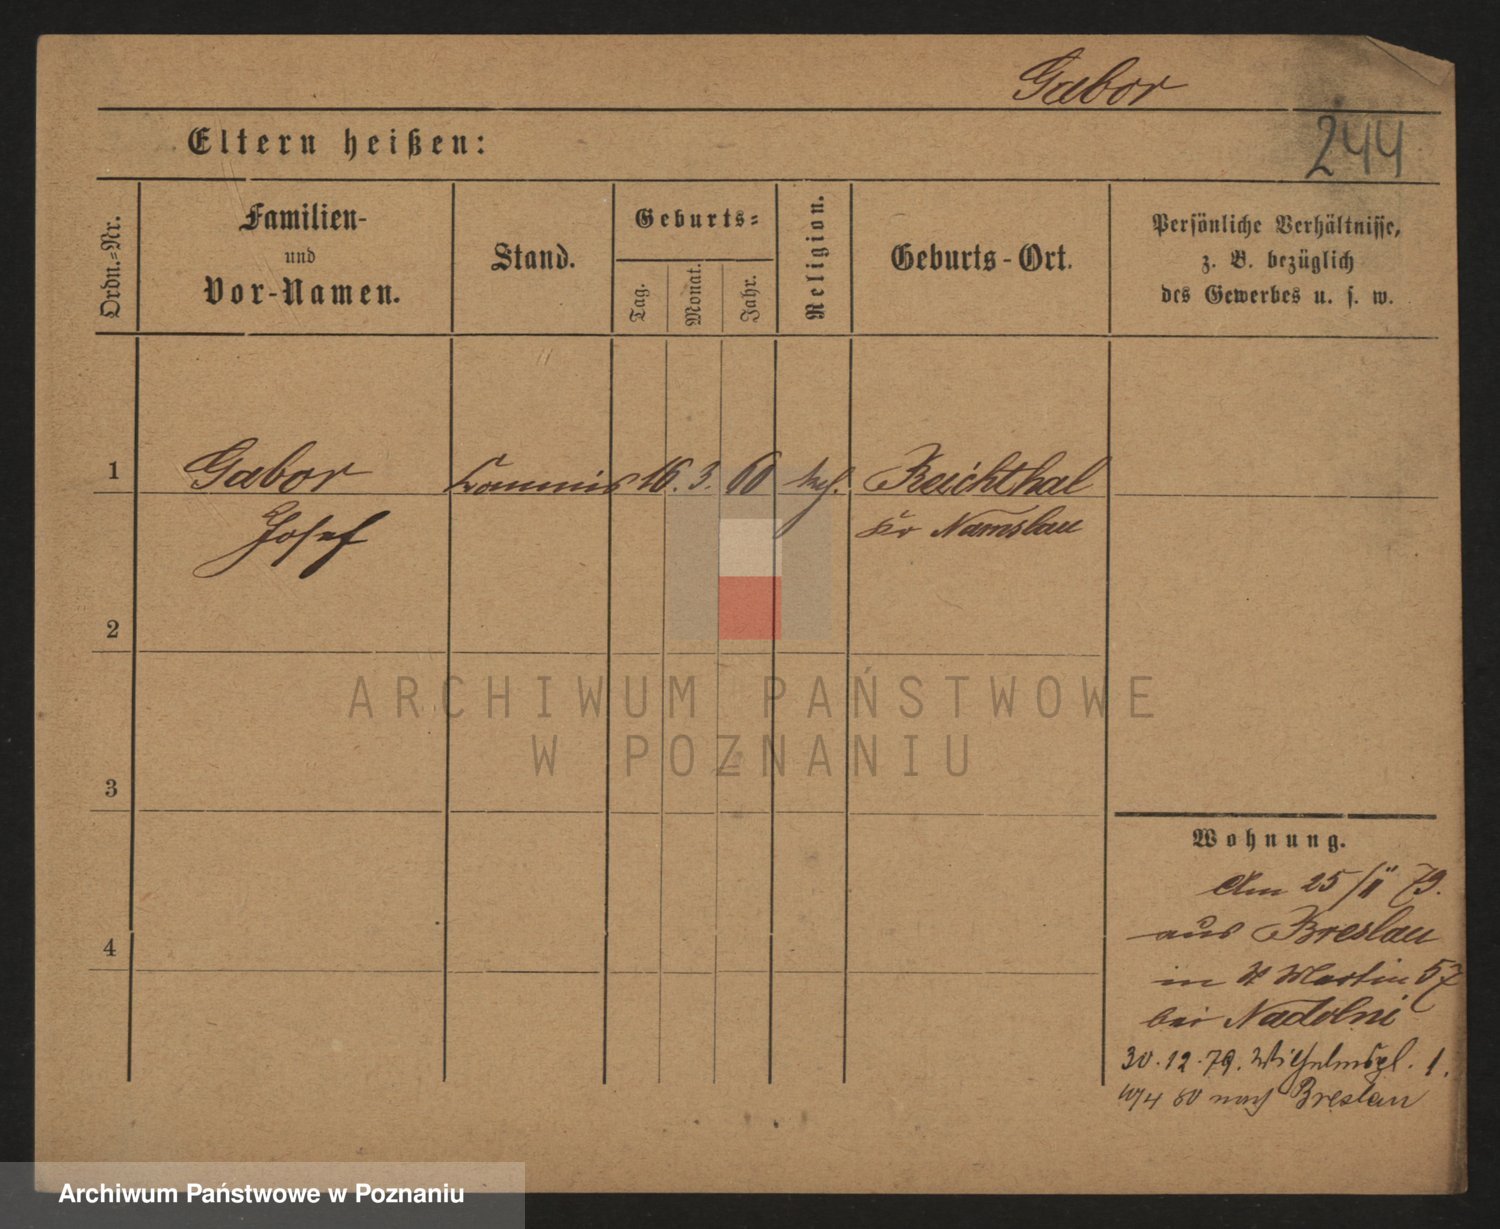 Gabor
244
Eltern heißen:
Ordn.-Nr.
Familien-
und
Vor-Namen.
Stand.
Geburts-
Tag.
Monat.
Jahr.
Religion.
Geburts-Ort.
Persönliche Verhältnisse,
z. B. bezüglich
des Gewerbes u. s. w.
1 Gabor Commis 16. 3. 60 Reichthal
Josef Kr Namslau
2
3
4
ARCHIWUM PAŃSTWOWE
W POZNANIU
Wohnung.
Am 25/II 79.
aus Breslau
in St Martin 57
bei Nadolni
30.12.79. Wilhelmspl. 1.
80 nach Breslau
Archiwum Państwowe w Poznaniu